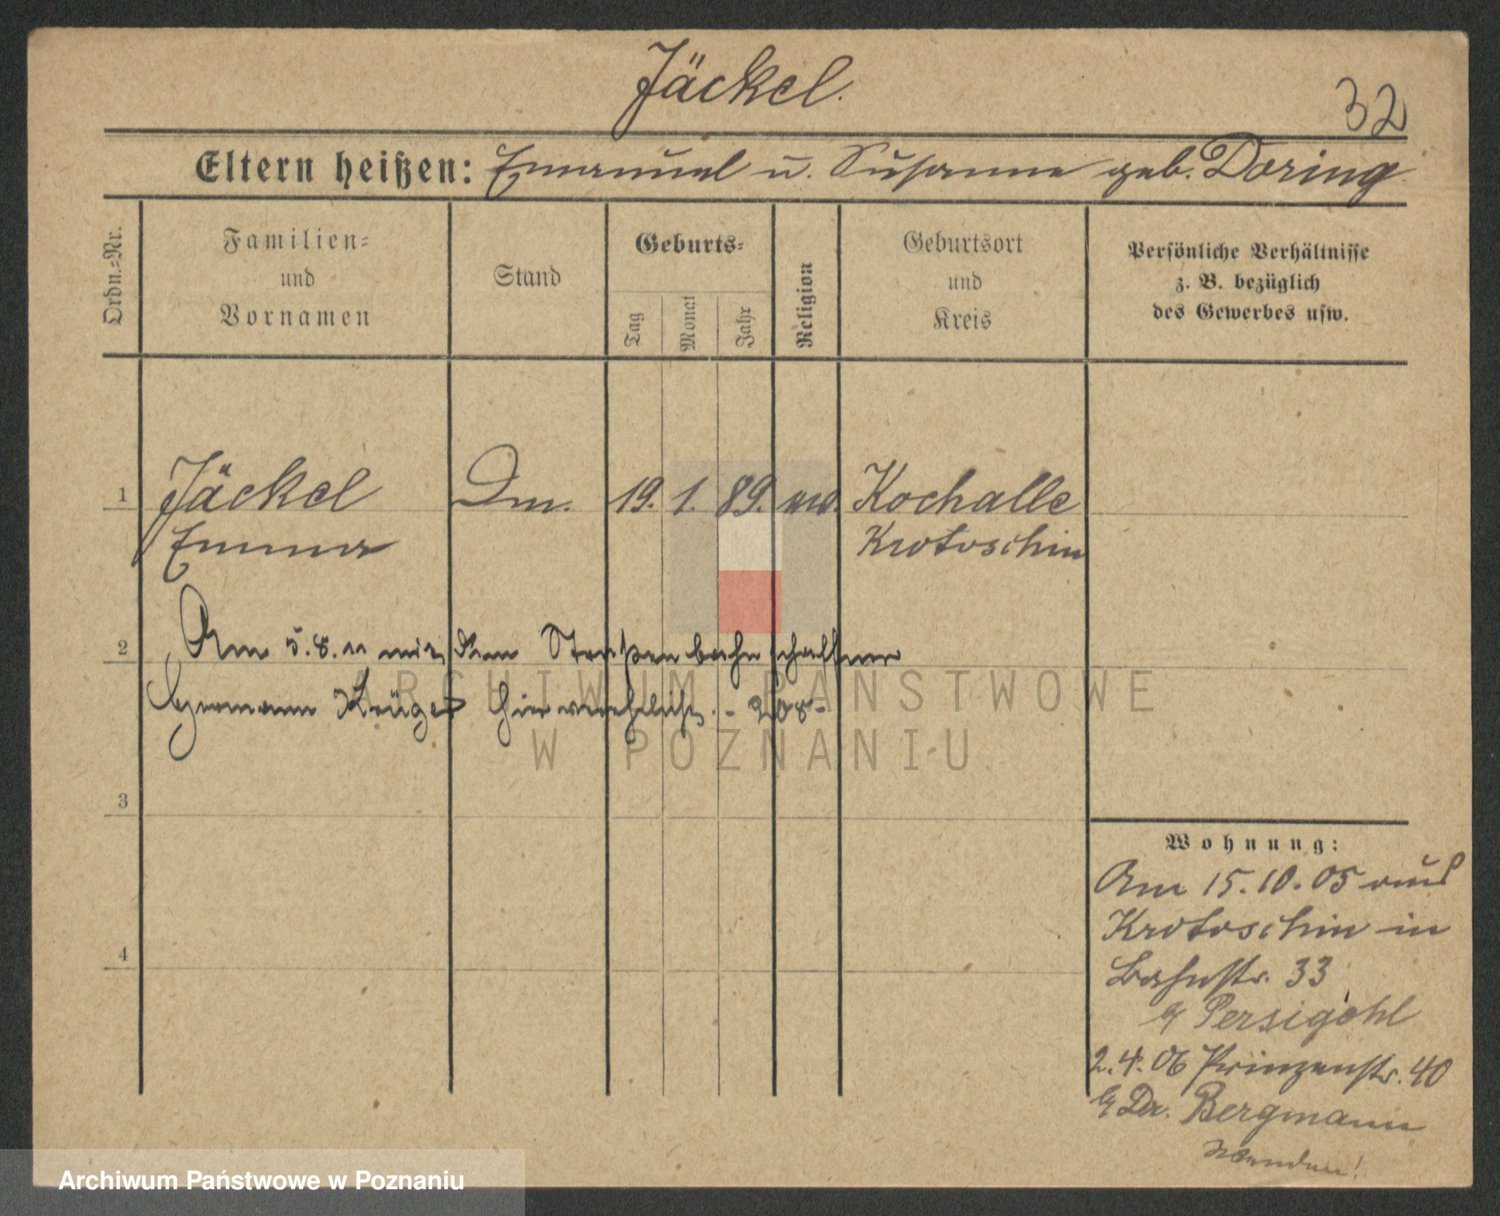 Jäckel.
32
Eltern heißen: Emanuel u. Susanne geb. Doring
Ordn.-Nr.
Familien-
und
Vornamen
Stand
Geburts-
Tag
Monat
Jahr
Religion
Geburtsort
und
Kreis
Persönliche Verhältnisse
z. B. bezüglich
des Gewerbes usw.
1 Jäckel Dm. 19. 1. 89. ev. Kochalle
Emma Krotoschin
2 Am 5.8.11 mit dem Straßenbahnschaffner
Hermann Krüger hier verehelicht. - 208 -
3
4
Wohnung:
Am 15.10.05 aus
Krotoschin in
Bahnstr. 33
b/ Persigehl
2.4.06 Prinzenstr. 40
b/ Dr. Bergmann
Wenden!
ARCHIWUM PAŃSTWOWE
W POZNANIU
Archiwum Państwowe w Poznaniu